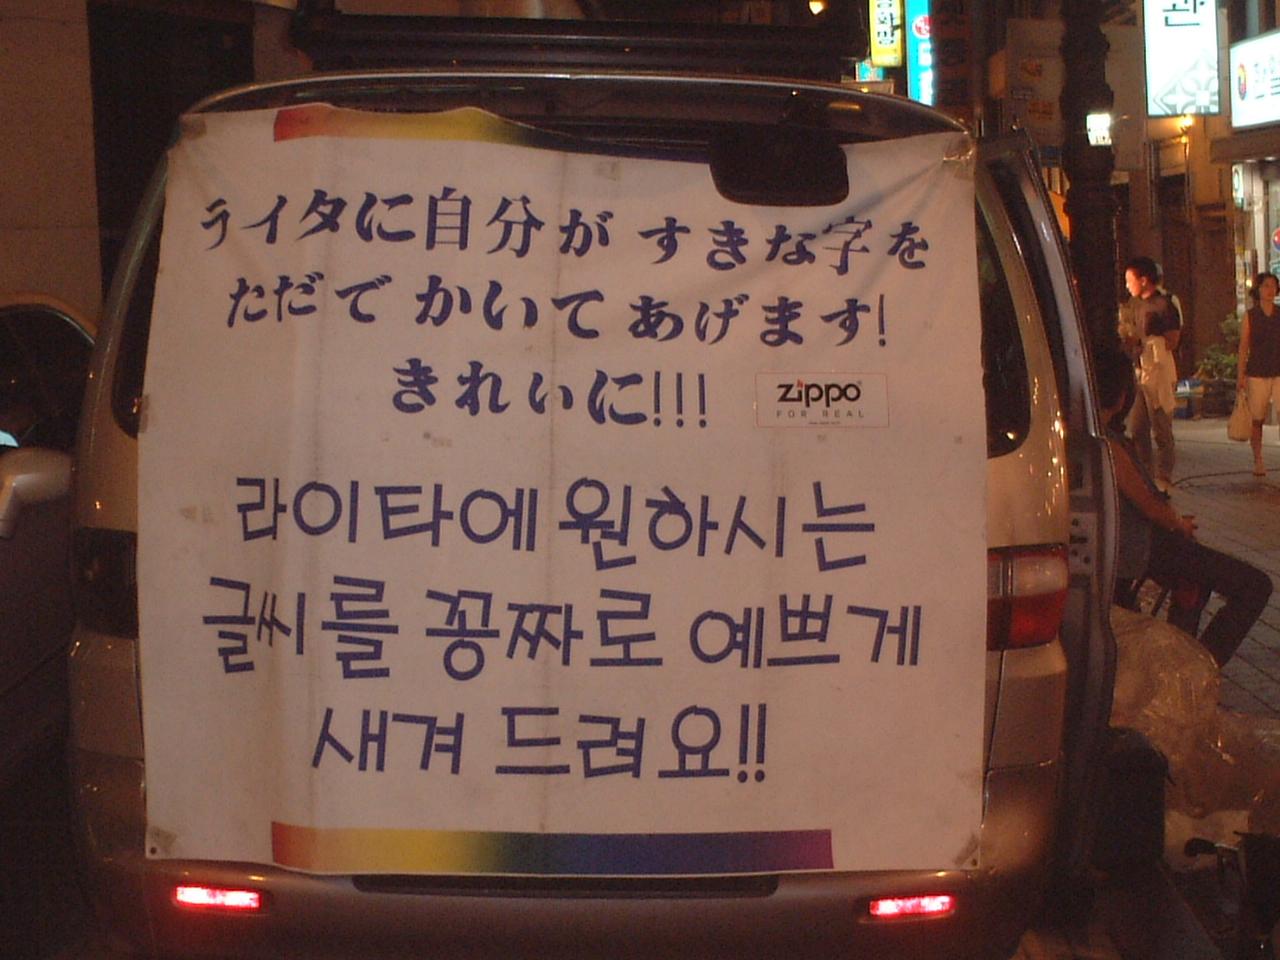 ライタに自分が すきな字を
ただで かいて あげます!
きれいに!!!
zippo
FOR REAL
라이타에 원하시는
글씨를 꽁짜로 예쁘게
새겨 드려요!!